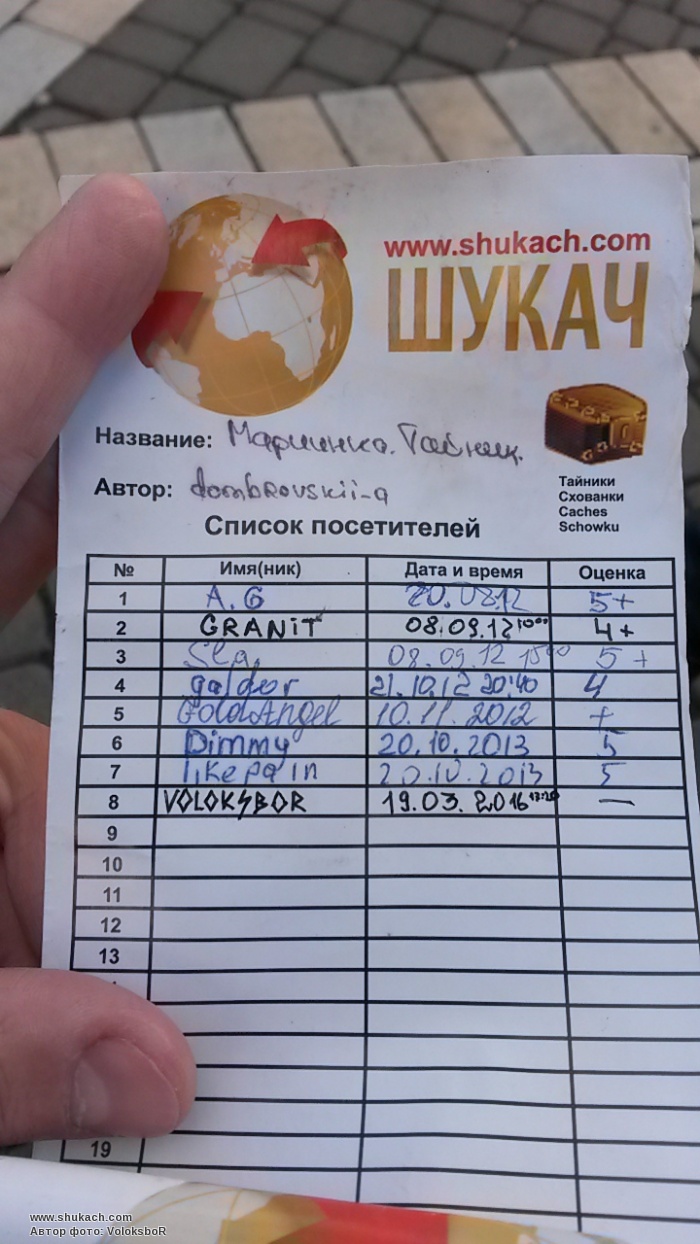 www.shukach.com
ШУКАЧ
Название: Мариинка. Тайник.
Автор: dombrovskii-a
Тайники
Схованки
Caches
Schowku
Список посетителей
№ Имя(ник) Дата и время Оценка
1 A.G 20.08.12 5+
2 GRANiT 08.09.12 15°° 4+
3 Sla, 08.09.12 15°° 5+
4 galdor 21.10.12 20:40 4
5 GoldAngel 10.11.2012 +
6 Dimmy 20.10.2013 5
7 likepain 20.10.2013 5
8 VOLOKSBOR 19.03.2016 —
9
10
11
12
13
19
www.shukach.com
Автор фото: VoloksboR